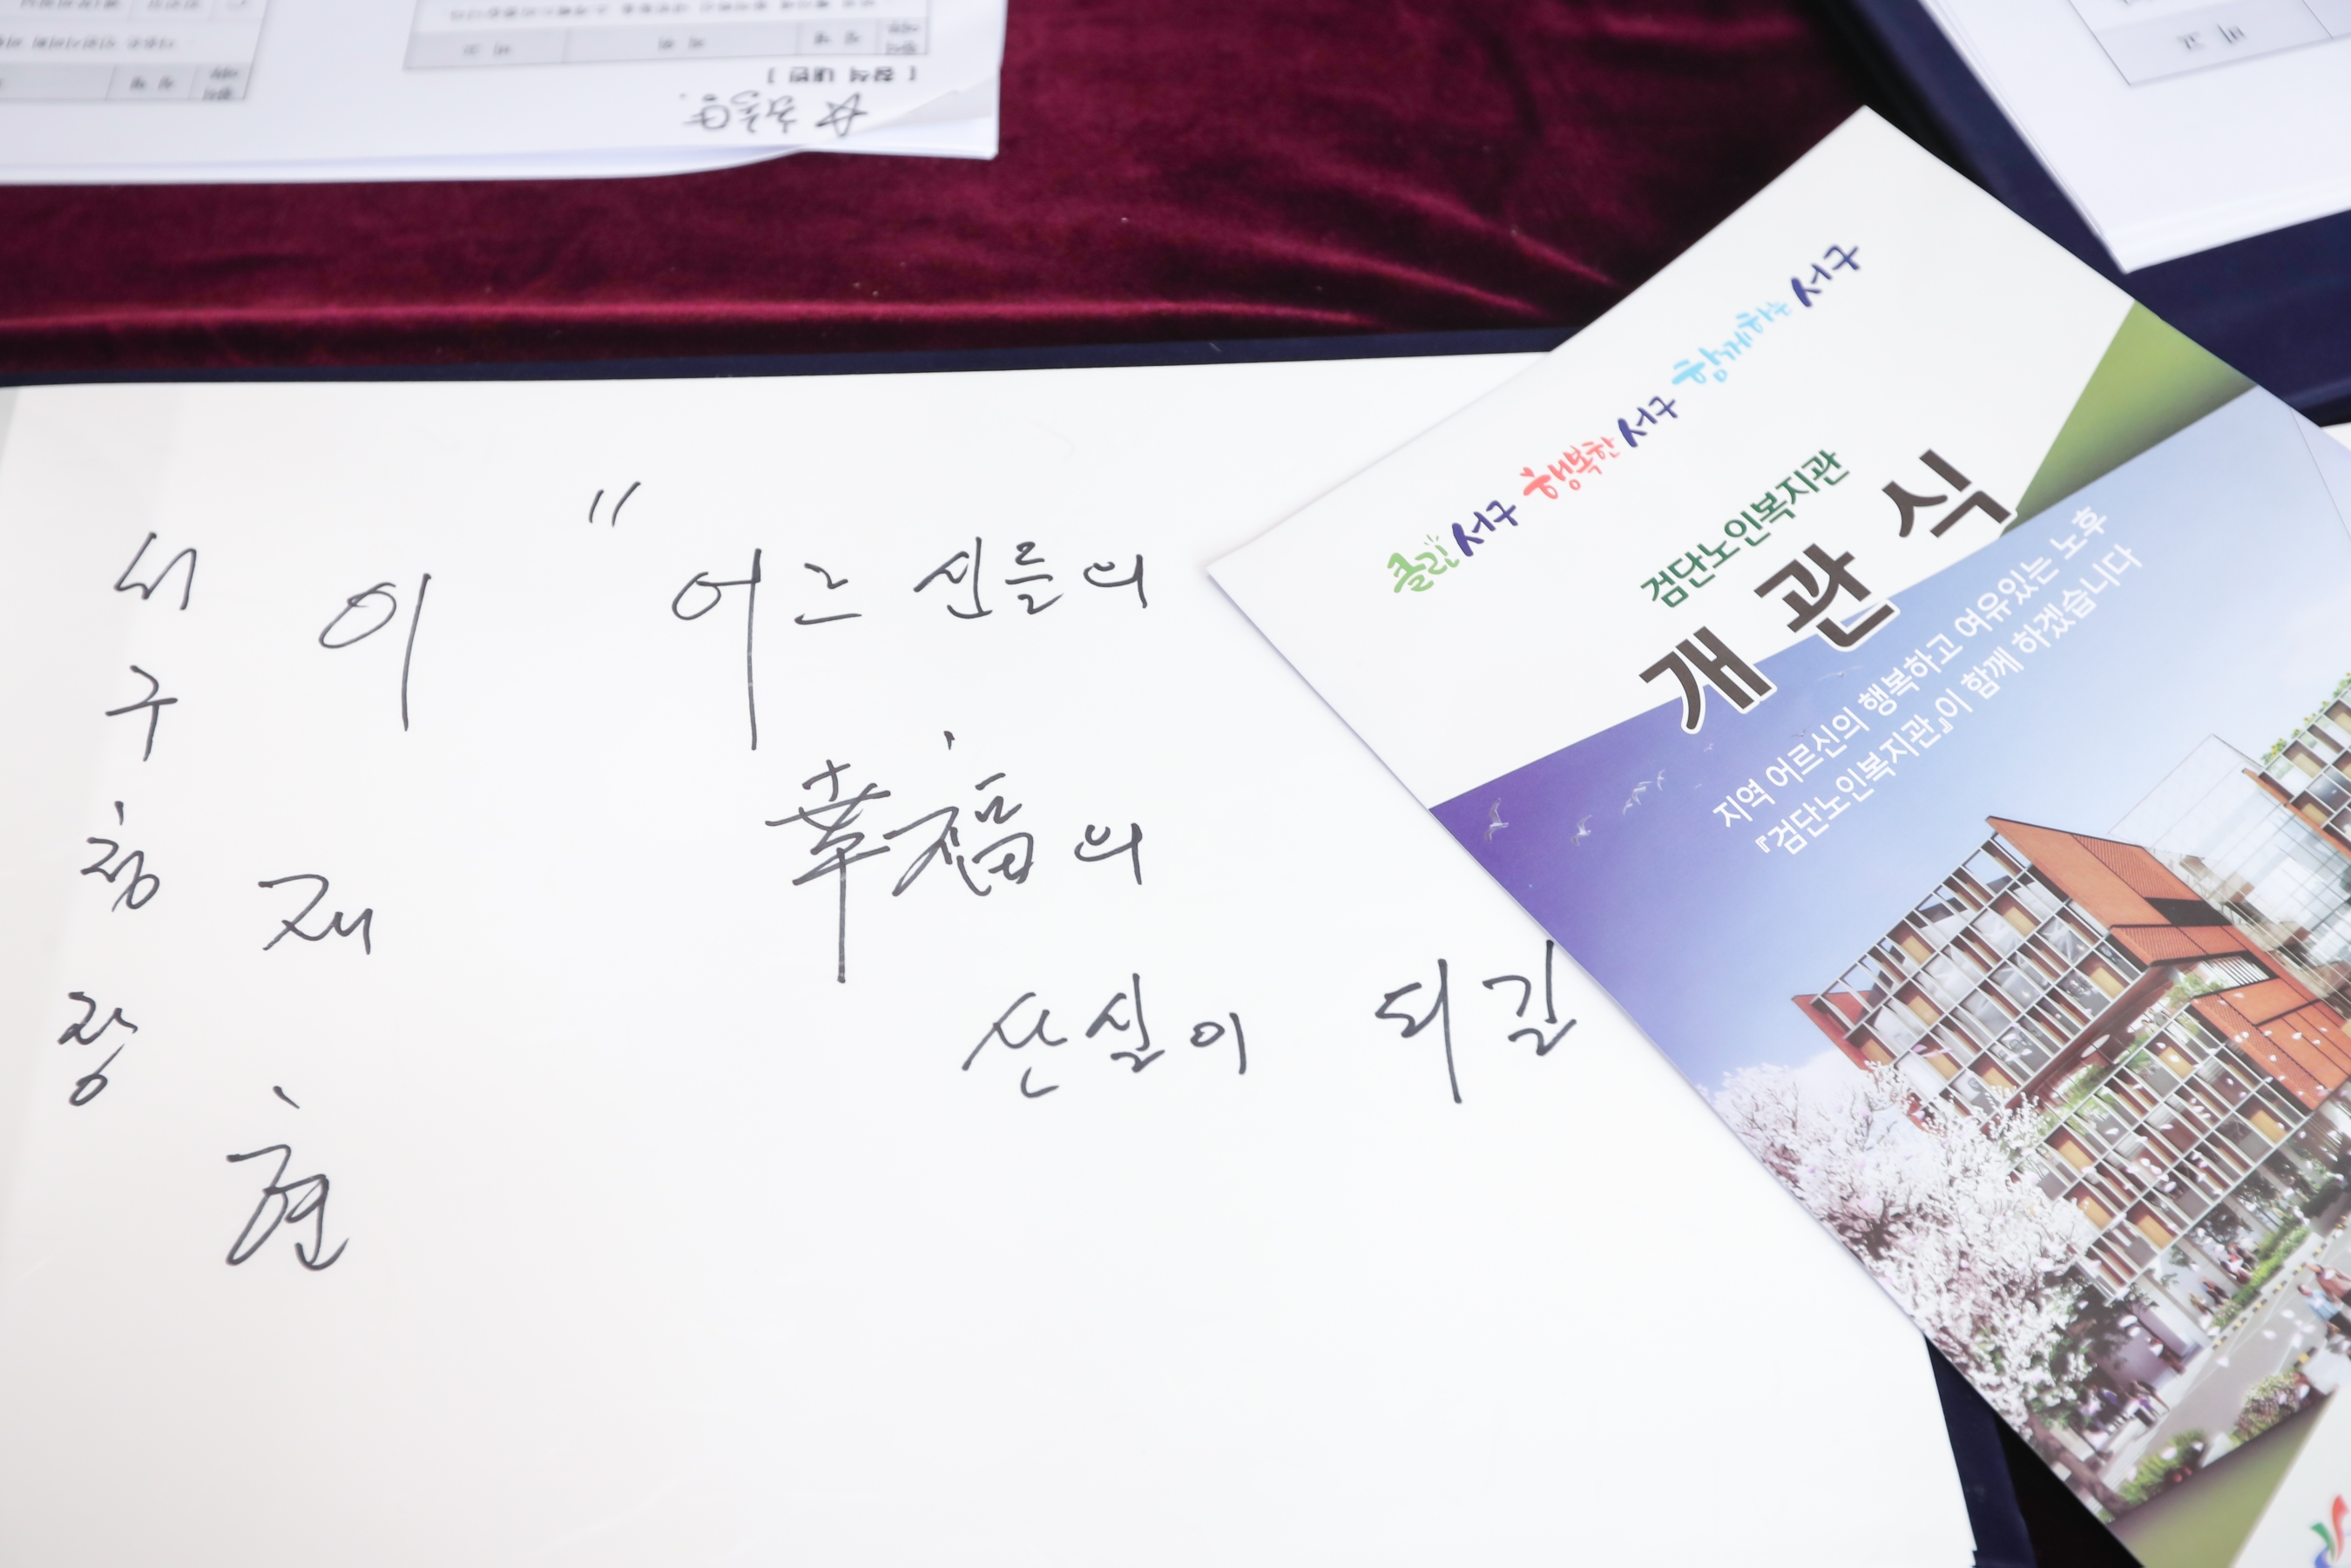 서구청장
이재현
" 어르신들의
幸福의
산실이 되길
클린 서구 행복한 서구 함께하는 서구
검단노인복지관
개관식
지역 어르신의 행복하고 여유있는 노후
『검단노인복지관』이 함께 하겠습니다
[ 참석 내빈 ]
비 고